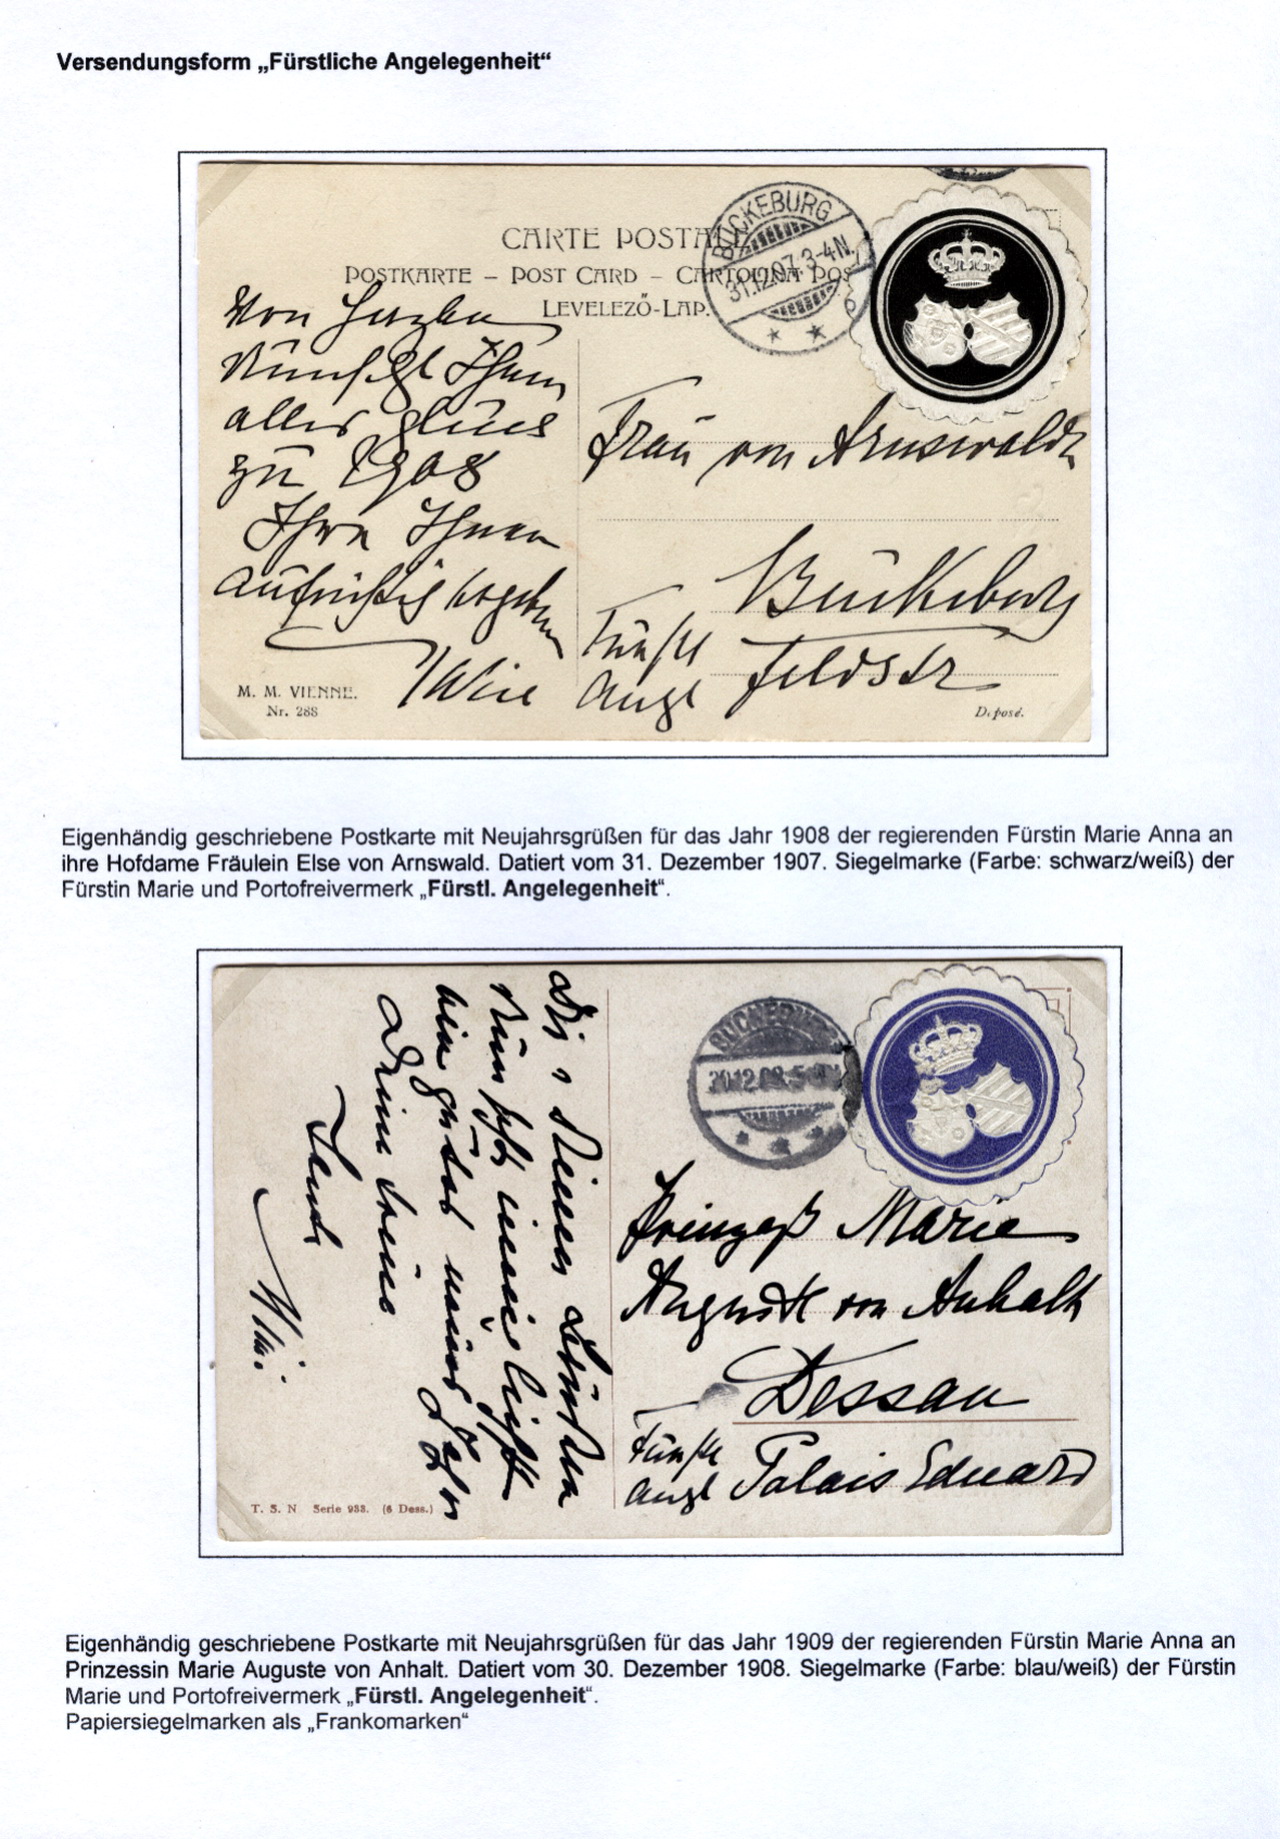 Versendungsform „Fürstliche Angelegenheit“
CARTE POSTALE
POSTKARTE – POST CARD – CARTOLINA POS
LEVELEZŐ-LAP.
BÜCKEBURG
31.12.07.3-4N.
Von Herzen
Wünscht Ihnen
alles Glück
zu 1908
Ihre Ihnen
aufrichtig ergebene
Frau von Arnswaldt
Bückeburg
Feldstr
Fürstl
Angl
M. M. VIENNE.
Nr. 288
Déposé.
Eigenhändig geschriebene Postkarte mit Neujahrsgrüßen für das Jahr 1908 der regierenden Fürstin Marie Anna an
ihre Hofdame Fräulein Else von Arnswald. Datiert vom 31. Dezember 1907. Siegelmarke (Farbe: schwarz/weiß) der
Fürstin Marie und Portofreivermerk „Fürstl. Angelegenheit“.
BÜCKEBURG
30.12.08.5
Dir u Deinen
wünscht
ein gutes neues Jahr
Deine treue
Tante
Prinzeß Marie
Auguste von Anhalt
Dessau
Fürstl
Angl
Palais Eduard
T. S. N Serie 933. (6 Dess.)
Eigenhändig geschriebene Postkarte mit Neujahrsgrüßen für das Jahr 1909 der regierenden Fürstin Marie Anna an
Prinzessin Marie Auguste von Anhalt. Datiert vom 30. Dezember 1908. Siegelmarke (Farbe: blau/weiß) der Fürstin
Marie und Portofreivermerk „Fürstl. Angelegenheit“.
Papiersiegelmarken als „Frankomarken“